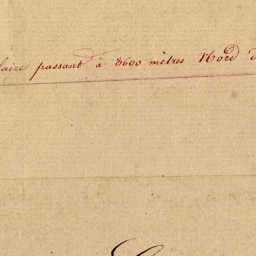 laire passant à 3600 mètres Nord d